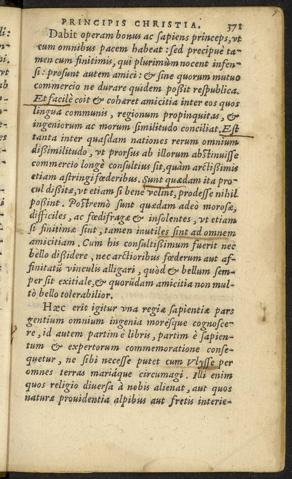 PRINCIPIS CHRISTIA. 371
Dabit operam bonus ac sapiens princeps, vt
cum omnibus pacem habeat: sed precipuè ta-
men cum finitimis, qui plurimùm nocent infen-
si: prosunt autem amici: & sine quorum mutuo
commercio ne durare quidem possit respublica.
Et facilè coit & cohæret amicitia inter eos quos
lingua communis, regionum propinquitas, &
ingeniorum ac morum similitudo conciliat. Est
tanta inter quasdam nationes rerum omnium
dissimilitudo, vt prorsus ab illorum abstinuisse
commercio longè consultius sit, quàm arctissimis
etiam astringi fœderibus. Sunt quædam ita pro-
cul dissitæ, vt etiam si bene velint, prodesse nihil
possint. Postremò sunt quædam adeò morosæ,
difficiles, ac fœdifragæ & insolentes, vt etiam
si finitimæ sint, tamen inutiles sint ad omnem
amicitiam. Cum his consultissimum fuerit nec
bello dissidere, nec arctioribus fœderum aut af-
finitatũ vinculis alligari, quòd & bellum sem-
per sit exitiale, & quorũdam amicitia non mul-
tò bello tolerabilior.
Hæc erit igitur vna regiæ sapientiæ pars
gentium omnium ingenia moresque cognosce-
re, id autem partim è libris, partim è sapien-
tum & expertorum commemoratione conse-
quetur, ne sibi necesse putet cum Vlysse per
omnes terras mariáque circumagi. Illi enim
quos religio diuersa à nobis alienat, aut quos
naturæ prouidentia alpibus aut fretis interie-